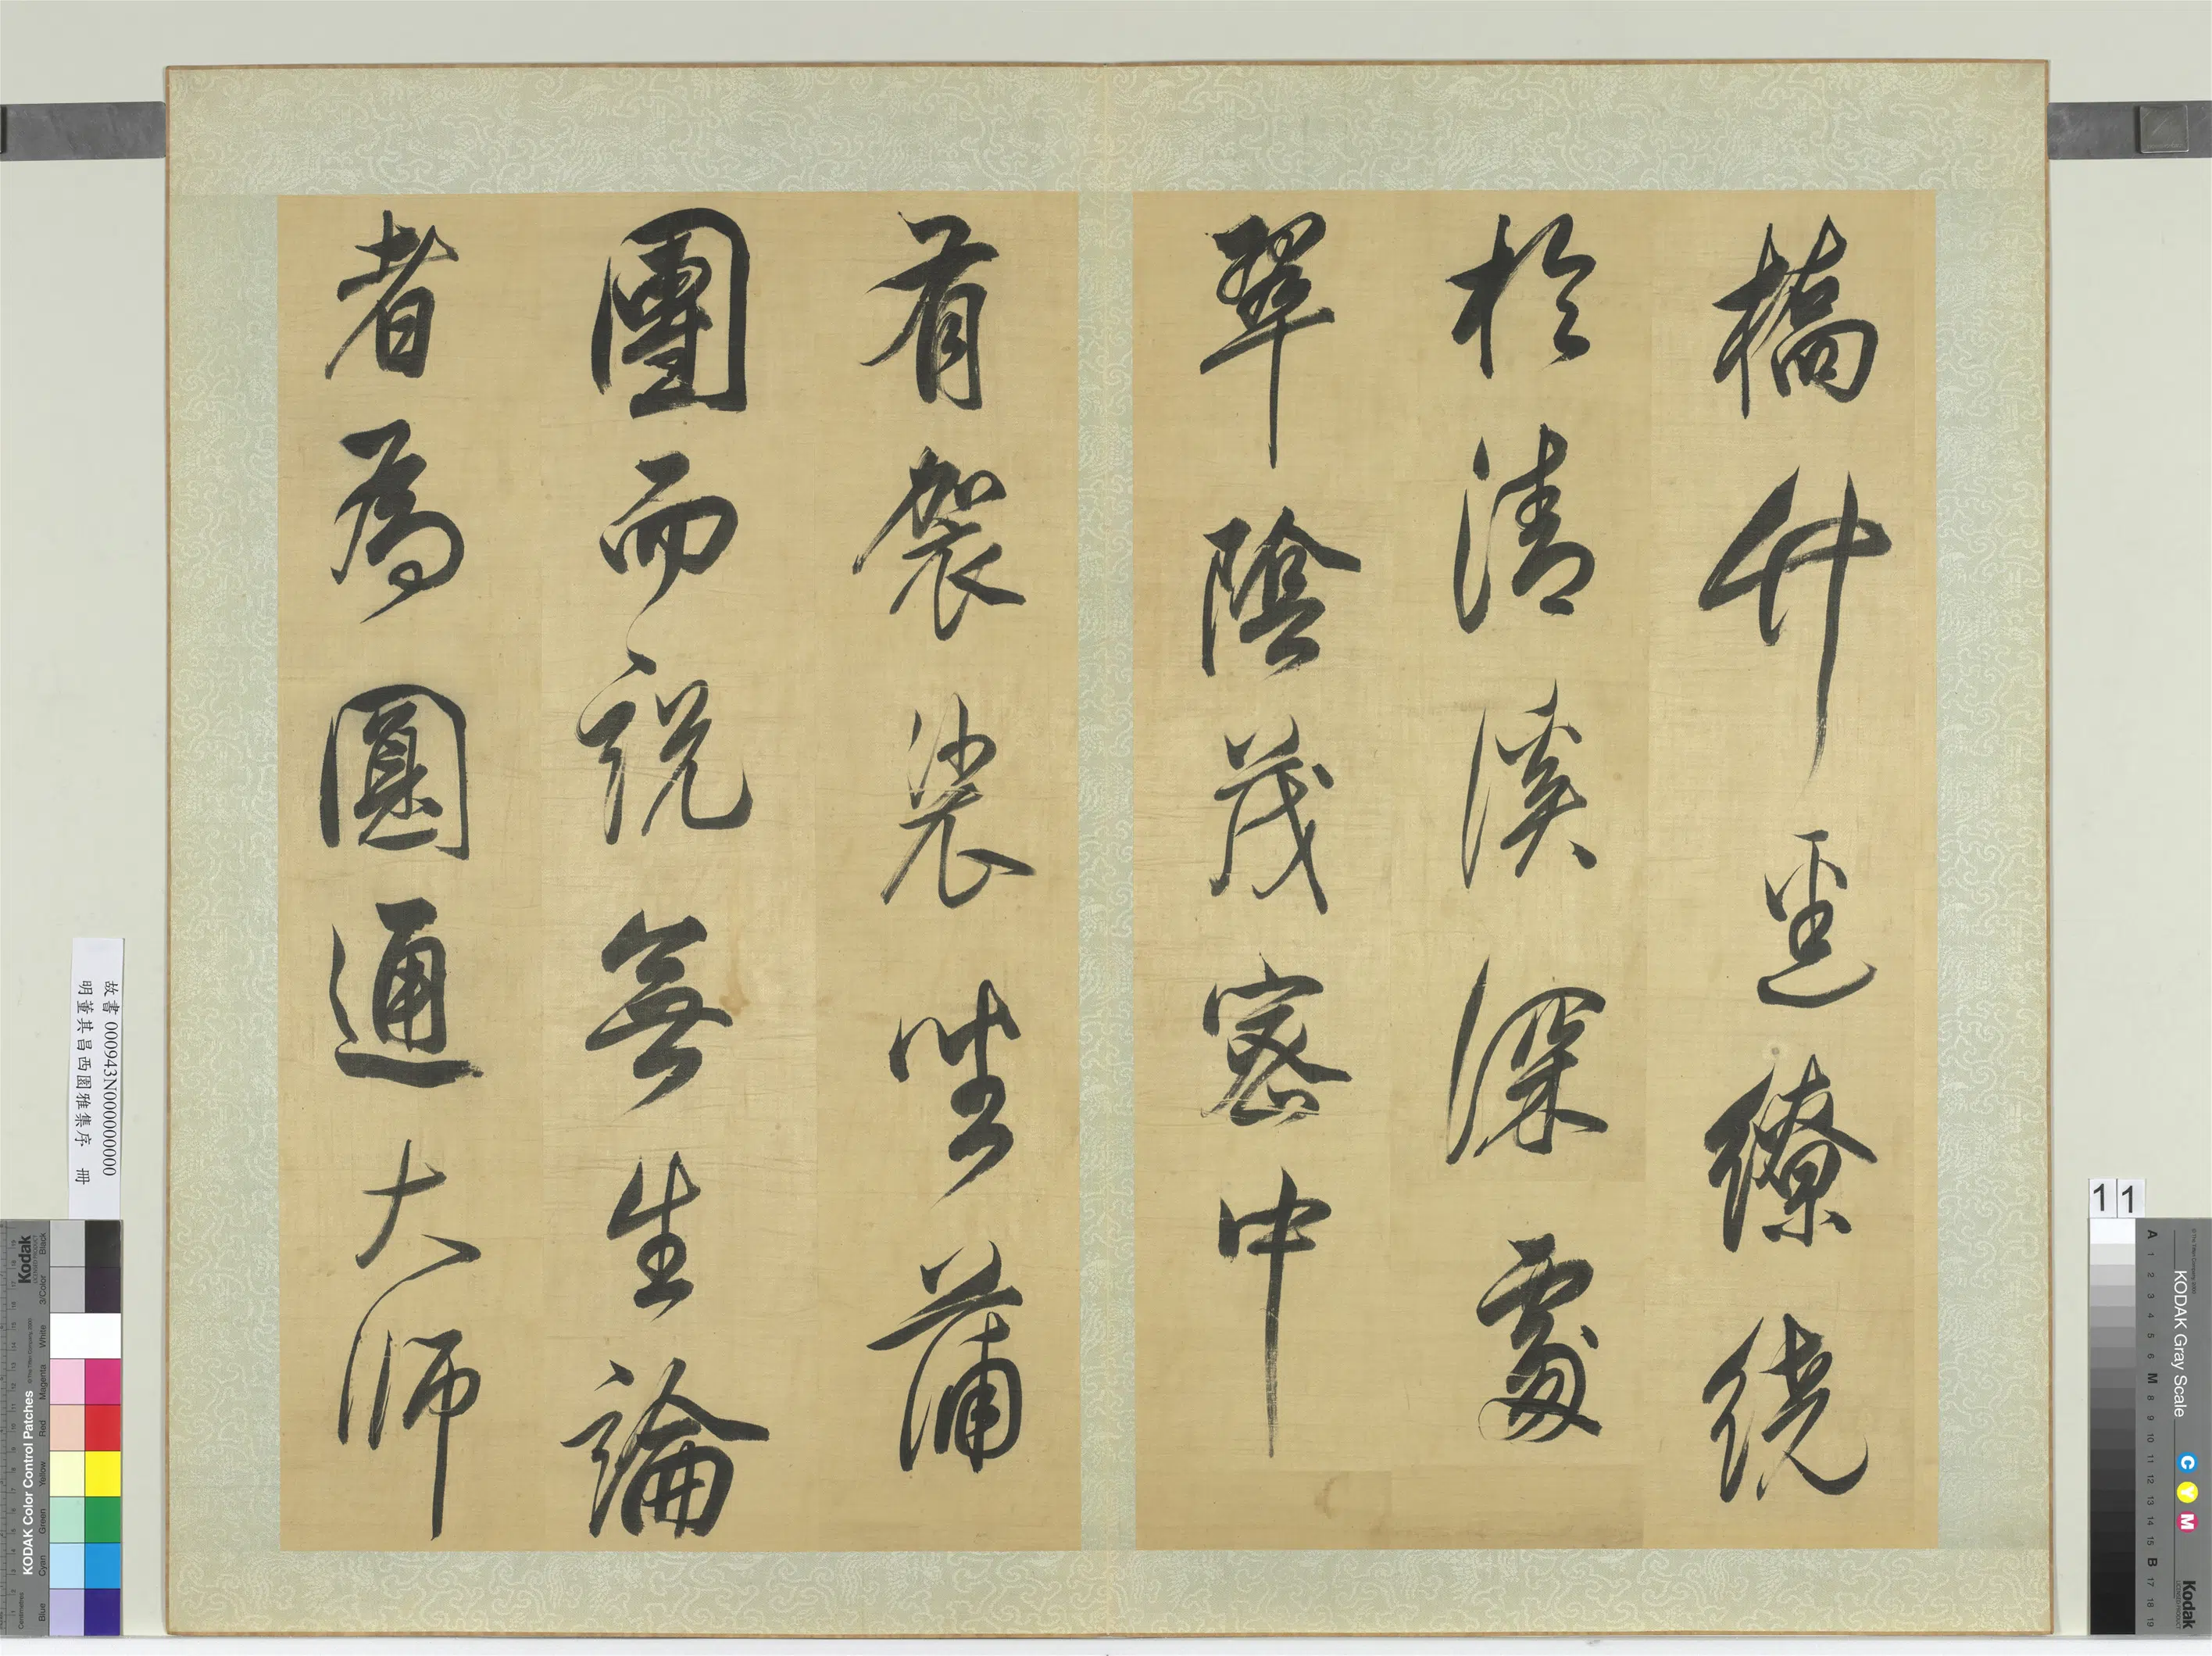 橋竹逕繚繞
於清溪深處
翠陰茂密中
有袈裟坐蒲
團而說無生論
者為圓通大師
故書 000943N000000000
明董其昌西園雅集序 冊
11
KODAK Color Control Patches
Kodak
Blue Cyan Green Yellow Red Magenta White 3/Color Black
KODAK Gray Scale
C Y M
Kodak
A 1 2 3 4 5 6 M 8 9 10 11 12 13 14 15 B 17 18 19